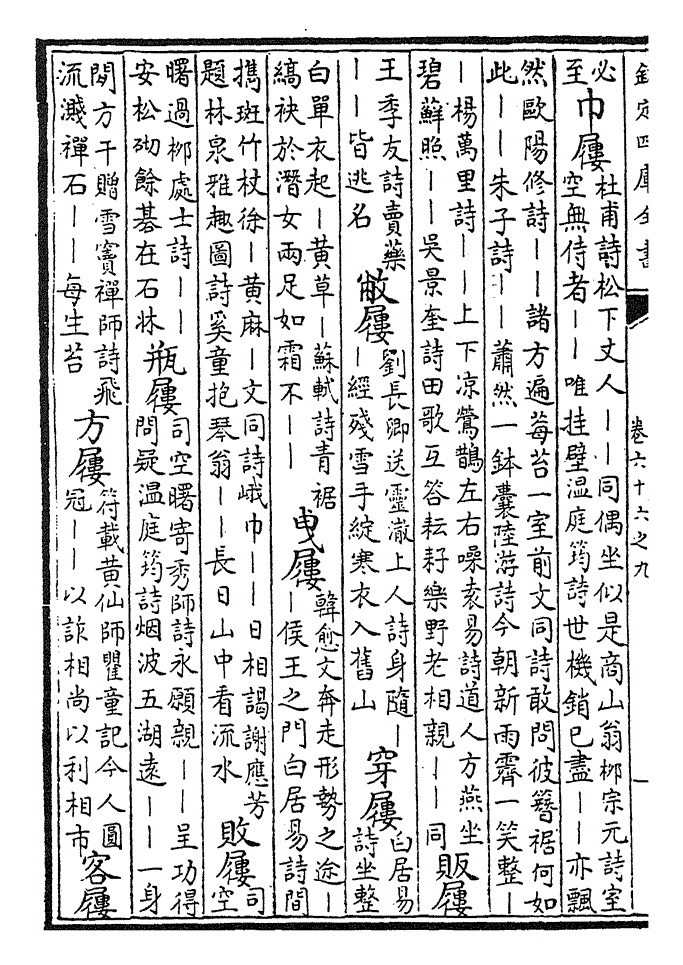 欽定四庫全書
卷六十六之九
必
至
巾屨
杜甫詩松下丈人——同偶坐似是商山翁栁宗元詩室
空無侍者——唯挂壁温庭筠詩世機銷已盡——亦飄
然歐陽修詩——諸方遍莓苔一室前文同詩敢問彼簪裾何如
此——朱子詩——蕭然一鉢囊陸游詩今朝新雨霽一笑整—
—楊萬里詩——上下凉鶯鵲左右噪袁易詩道人方燕坐
碧蘚照——吳景奎詩田歌互答耘耔樂野老相親——同
販屨
王季友詩賣藥
——皆逃名
敝屨
劉長卿送靈澈上人詩身隨—
—經殘雪手綻寒衣入舊山
穿屨
白居易
詩坐整
白單衣起—黄草—蘇軾詩青裾
縞袂於潛女兩足如霜不——
曵屨
韓愈文奔走形勢之途—
—侯王之門白居易詩閒
擕斑竹杖徐—黄麻—文同詩峨巾——日相謁謝應芳
題林泉雅趣圖詩奚童抱琴翁——長日山中看流水
敗屨
司
空
曙過栁處士詩——
安松砌餘棊在石牀
瓶屨
司空曙寄秀師詩永願親——呈功得
問疑温庭筠詩烟波五湖遠——一身
閒方干贈雪竇禪師詩飛
流濺禪石——每生苔
方屨
符載黄仙師瞿童記今人圓
冠——以詐相尚以利相市
客屨